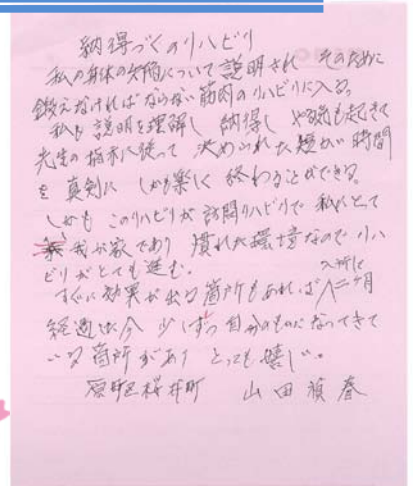 納得づくのリハビリ
私の身体の欠陥について説明され そのために
鍛えなければならない筋肉のリハビリに入る。
私も説明を理解し 納得し やる気も起きて
先生の指示に従って 決められた短かい時間
を真剣に しかも楽しく 終わることができる。
しかも このリハビリが訪問リハビリで 私にとって
我が家であり 慣れた環境なので リハ
ビリがとても進む。
すぐに効果が出る箇所もあれば 入所して
二ヶ月
経過した今 少しずつ自分のものになってきて
いる箇所があり とっても嬉しい。
桜井町 山田 春